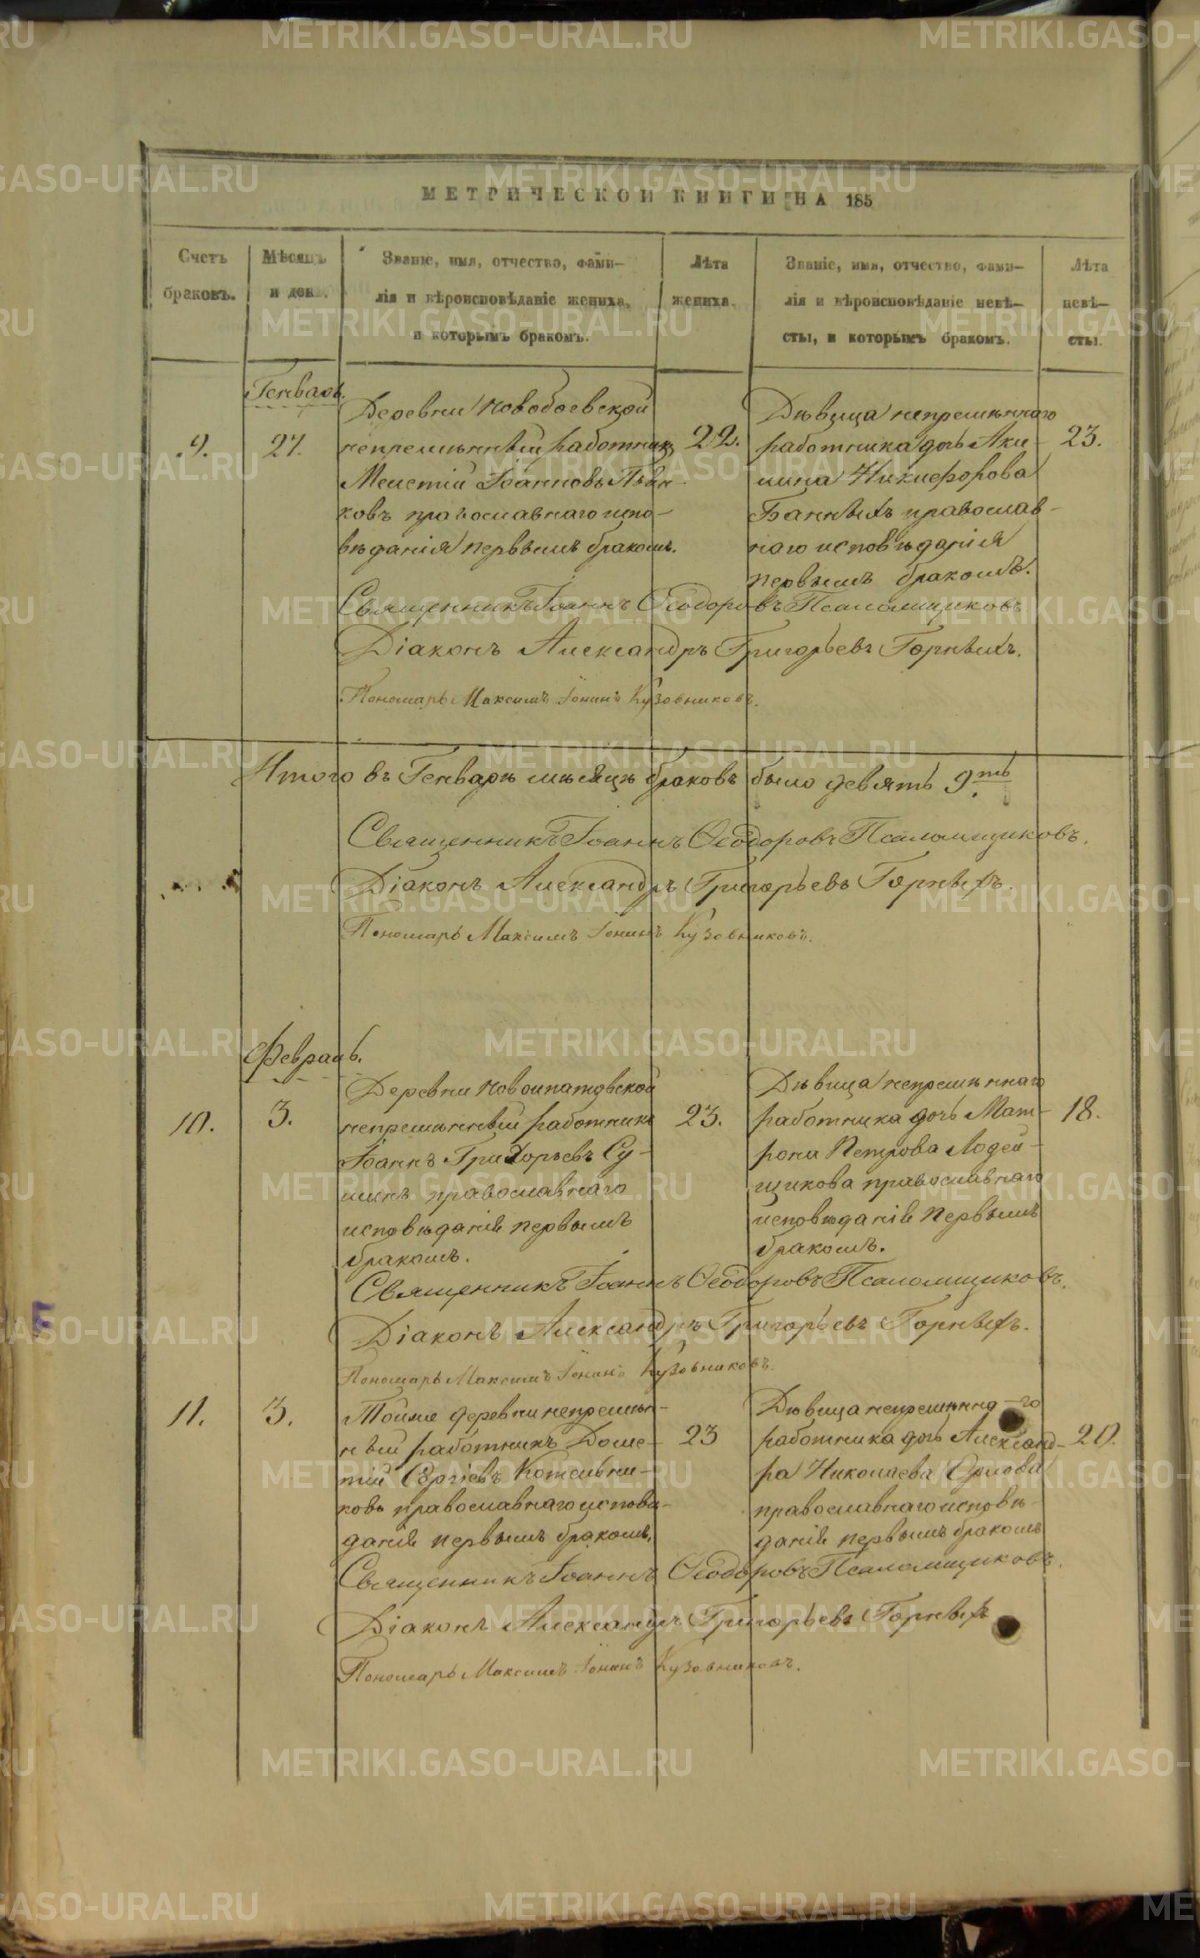 МЕТРИЧЕСКОЙ КНИГИ НА 185
Счетъ браковъ.
Мѣсяцъ и день.
Званіе, имя, отчество, фами-
лія и вѣроисповѣданіе жениха,
и которымъ бракомъ.
Лѣта жениха.
Званіе, имя, отчество, фами-
лія и вѣроисповѣданіе невѣ-
сты, и которымъ бракомъ.
Лѣта невѣ-
сты.
Генварь.
9.
27.
Деревни Новобоевской
непремѣнный работникъ
Іоанновъ
ковъ православнаго испо-
вѣданія первымъ бракомъ.
22.
Дѣвица непремѣннаго
работника дочь Аки-
лина Никифорова
Банныхъ православ-
наго исповѣданія
первымъ бракомъ.
23.
Священникъ Іоаннъ Ѳеодоровъ Псаломщиковъ
Діаконъ Александръ Григорьевъ Горныхъ.
Пономарь Максимъ Іонинъ Кузовниковъ.
Итого въ Генварѣ мѣсяцѣ браковъ было девять 9ть.
Священникъ Іоаннъ Ѳеодоровъ Псаломщиковъ.
Діаконъ Александръ Григорьевъ Горныхъ.
Пономарь Максимъ Іонинъ Кузовниковъ.
Февраль.
10.
3.
Деревни Новоипатовской
непремѣнный работникъ
Іоаннъ Григорьевъ Су-
православнаго
исповѣданія первымъ
бракомъ.
23.
Дѣвица непремѣннаго
работника дочь Мат-
рона Петрова Лодей-
щикова православнаго
исповѣданія первымъ
бракомъ.
18.
Священникъ Іоаннъ Ѳеодоровъ Псаломщиковъ.
Діаконъ Александръ Григорьевъ Горныхъ.
Пономарь Максимъ Іонинъ Кузовниковъ.
11.
3.
Тойже деревни непремѣн-
ный работникъ Доме-
тій Сергіевъ Котельни-
ковъ православнаго исповѣ-
данія первымъ бракомъ.
23
Дѣвица непремѣннаго
работника дочь Александ-
ра Николаева Орлова
православнаго исповѣ-
данія первымъ бракомъ
20.
Священникъ Іоаннъ Ѳеодоровъ Псаломщиковъ.
Діаконъ Александръ Григорьевъ Горныхъ
Пономарь Максимъ Іонинъ Кузовниковъ.
METRIKI.GASO-URAL.RU